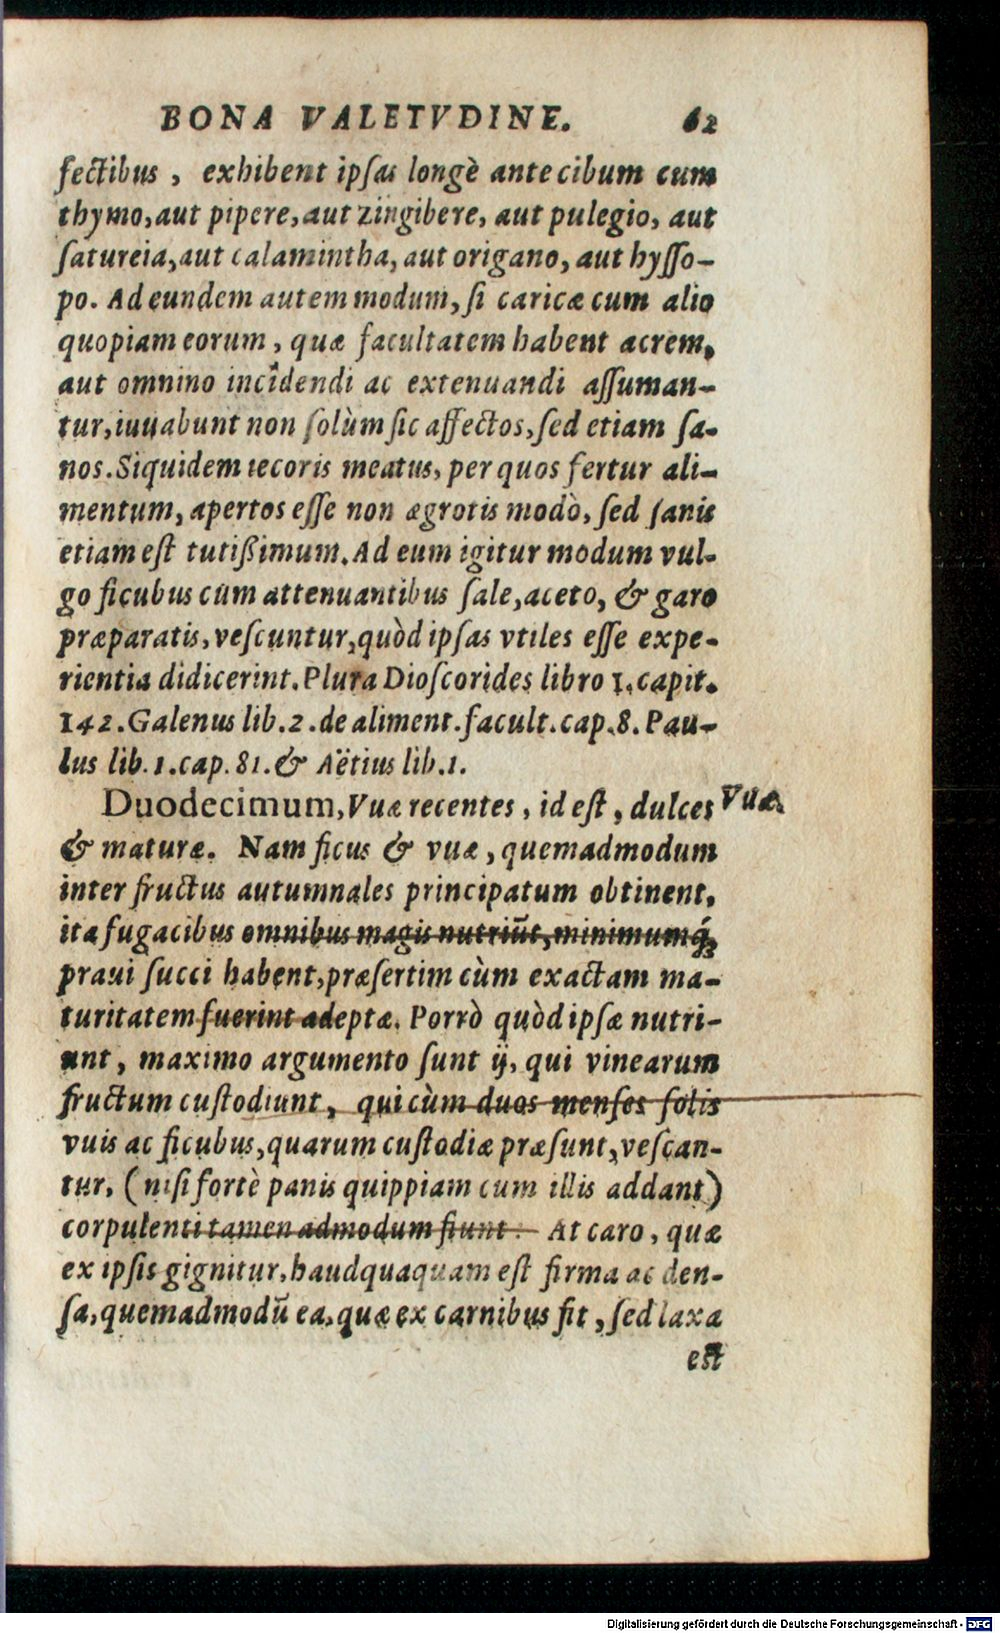 BONA VALETVDINE. 62
fectibus, exhibent ipſas longè ante cibum cum
thymo, aut pipere, aut zingibere, aut pulegio, aut
ſatureia, aut calamintha, aut origano, aut hyſſo-
po. Ad eundem autem modum, ſi caricæ cum alio
quopiam eorum, quæ facultatem habent acrem,
aut omnino incidendi ac extenuandi aſſuman-
tur, iuuabunt non ſolùm ſic affectos, ſed etiam ſa-
nos. Siquidem iecoris meatus, per quos fertur ali-
mentum, apertos eſſe non ægrotis modò, ſed ſanis
etiam eſt tutißimum. Ad eum igitur modum vul-
go ficubus cum attenuantibus ſale, aceto, & garo
præparatis, veſcuntur, quòd ipſas vtiles eſſe expe-
rientia didicerint. Plura Dioſcorides libro 1. capit.
142. Galenus lib. 2. de aliment. facult. cap. 8. Pau-
lus lib. 1. cap. 81. & Aëtius lib. 1.
Duodecimum, Vuæ recentes, id eſt, dulces Vuæ.
& maturæ. Nam ficus & vuæ, quemadmodum
inter fructus autumnales principatum obtinent,
ita fugacibus omnibus magis nutriũt, minimumq́;
praui ſucci habent, præſertim cùm exactam ma-
turitatem fuerint adeptæ. Porrò quòd ipſæ nutri-
ant, maximo argumento ſunt ij, qui vinearum
fructum cuſtodiunt, qui cùm duos menſes ſolis
vuis ac ficubus, quarum cuſtodiæ præſunt, veſcan-
tur, (niſi fortè panis quippiam cum illis addant)
corpulenti tamen admodum fiunt. At caro, quæ
ex ipſis gignitur, haudquaquam eſt firma ac den-
ſa, quemadmodũ ea, quæ ex carnibus fit, ſed laxa
eſt
Digitalisierung gefördert durch die Deutsche Forschungsgemeinschaft - DFG